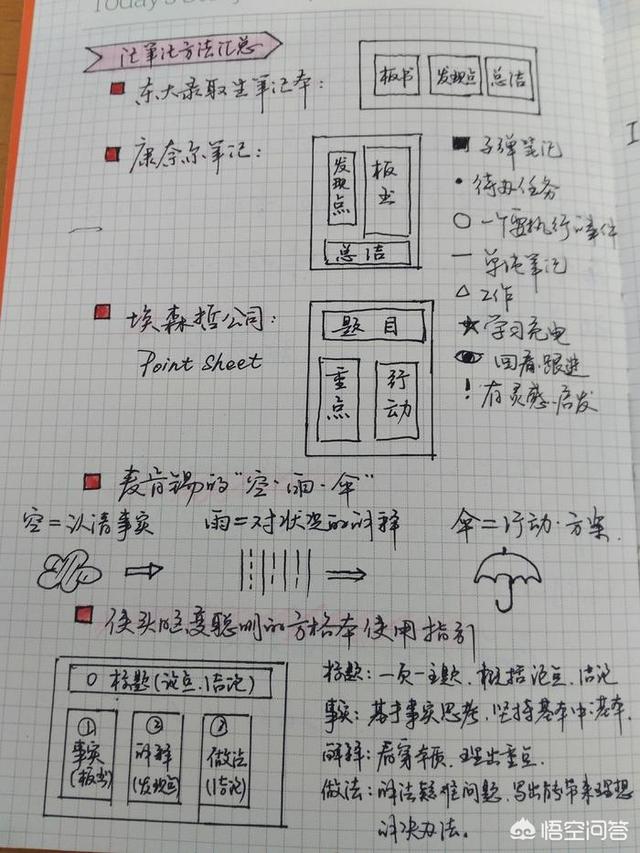 Today's
记笔记方法汇总
东大录取生笔记本：
板书 发现点 总结
康奈尔笔记：
发现点
板书
总结
子弹笔记
待办任务
一个要执行的事件
一 单纯笔记
△ 工作
学习充电
回看·跟进
! 有灵感·启发
埃森哲公司：
Point Sheet
题目
重点
行动
麦肯锡的“空·雨·伞”
空=认清事实 雨=对状况的解释 伞=行动·方案.
使头脑变聪明的方格本使用指引
0 标题(论点.结论)
① 事实(板书)
② 解释
③ 做法(结论)
标题：一页一主题.概括论点.结论
事实：基于事实思考.坚持基本中基本.
解释：看穿本质.理出重点.
做法：解法疑难问题.写出能带来理想
的决办法。
悟空问答